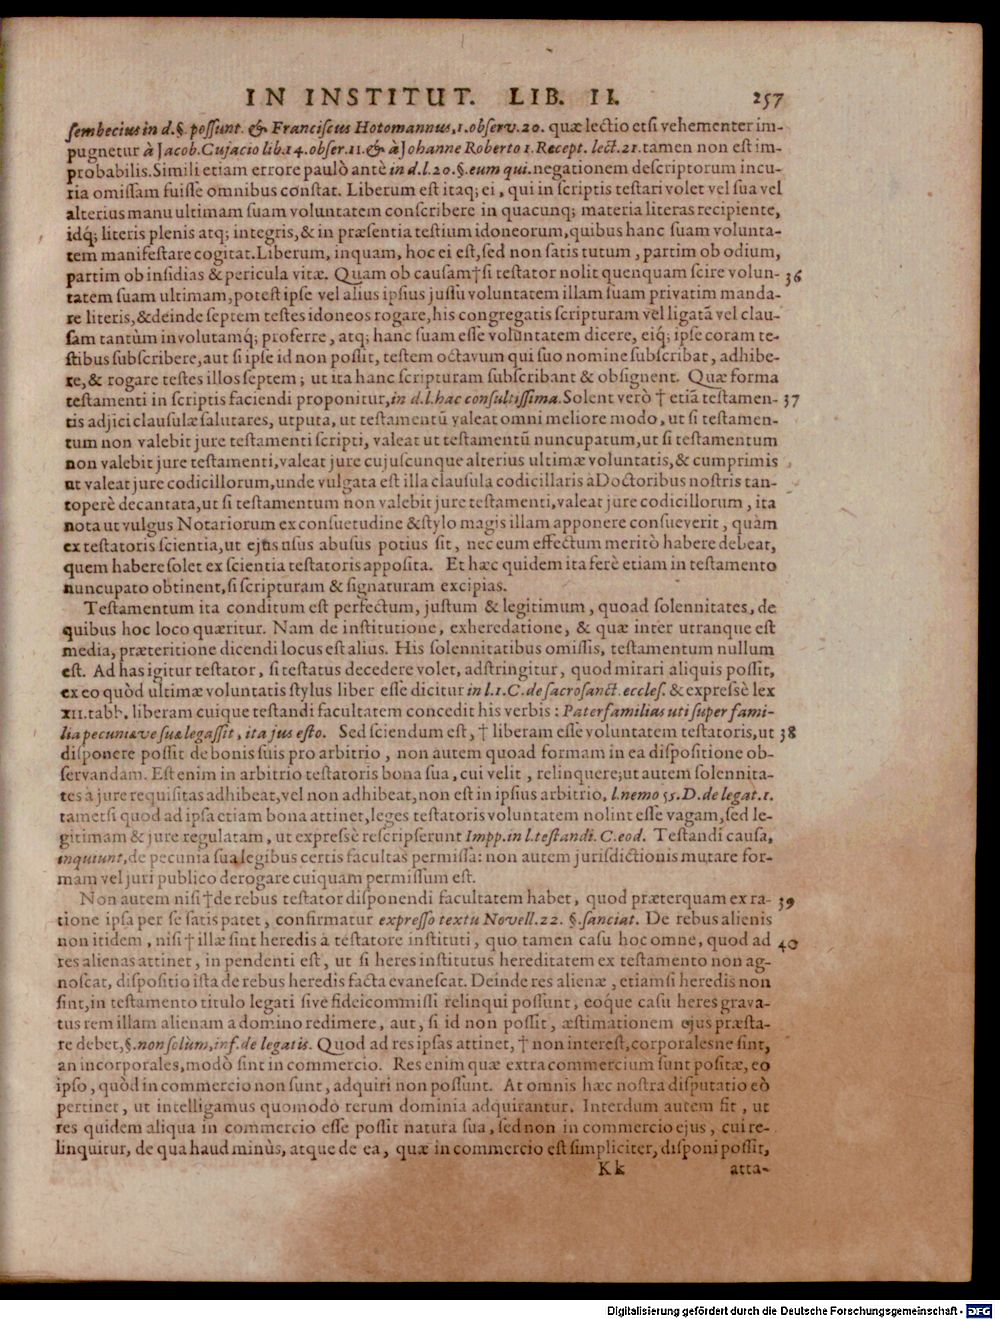 IN INSTITUT. LIB. II. 257
sembecius in d.§. possunt. & Franciscus Hotomannus, 1. observ. 20. quæ lectio etsi vehementer im-
pugnetur à Jacob. Cujacio lib. 14. obser. 11. & à Johanne Roberto 1. Recept. lect. 21. tamen non est im-
probabilis. Simili etiam errore paulò antè in d.l. 20. §. eum qui. negationem descriptorum incu-
ria omissam fuisse omnibus constat. Liberum est itaq; ei, qui in scriptis testari volet vel sua vel
alterius manu ultimam suam voluntatem conscribere in quacunq; materia literas recipiente,
idq; literis plenis atq; integris, & in præsentia testium idoneorum, quibus hanc suam volunta-
tem manifestare cogitat. Liberum, inquam, hoc ei est, sed non satis tutum, partim ob odium,
partim ob insidias & pericula vitæ. Quam ob causam † si testator nolit quenquam scire volun- 36
tatem suam ultimam, potest ipse vel alius ipsius jussu voluntatem illam suam privatim manda-
re literis, & deinde septem testes idoneos rogare, his congregatis scripturam vel ligatã vel clau-
sam tantùm involutamq; proferre, atq; hanc suam esse voluntatem dicere, eiq; ipse coram te-
stibus subscribere, aut si ipse id non possit, testem octavum qui suo nomine subscribat, adhibe-
re, & rogare testes illos septem; ut ita hanc scripturam subscribant & obsignent. Quæ forma
testamenti in scriptis faciendi proponitur, in d.l. hac consultissima. Solent verò † etiã testamen- 37
tis adjici clausulæ salutares, utputa, ut testamentũ valeat omni meliore modo, ut si testamen-
tum non valebit jure testamenti scripti, valeat ut testamentũ nuncupatum, ut si testamentum
non valebit jure testamenti, valeat jure cujuscunque alterius ultimæ voluntatis, & cumprimis
ut valeat jure codicillorum, unde vulgata est illa clausula codicillaris à Doctoribus nostris tan-
toperè decantata, ut si testamentum non valebit jure testamenti, valeat jure codicillorum, ita
nota ut vulgus Notariorum ex consuetudine & stylo magis illam apponere consueverit, quàm
ex testatoris scientia, ut ejus usus abusus potius sit, nec eum effectum meritò habere debeat,
quem habere solet ex scientia testatoris apposita. Et hæc quidem ita ferè etiam in testamento
nuncupato obtinent, si scripturam & signaturam excipias.
Testamentum ita conditum est perfectum, justum & legitimum, quoad solennitates, de
quibus hoc loco quæritur. Nam de institutione, exheredatione, & quæ inter utranque est
media, præteritione dicendi locus est alius. His solennitatibus omissis, testamentum nullum
est. Ad has igitur testator, si testatus decedere volet, adstringitur, quod mirari aliquis possit,
ex eo quòd ultimæ voluntatis stylus liber esse dicitur in l. 1. C. de sacrosanct. eccles. & expressè lex
XII. tabb. liberam cuique testandi facultatem concedit his verbis: Paterfamilias uti super fami-
lia pecuniave sua legassit, ita jus esto. Sed sciendum est, † liberam esse voluntatem testatoris, ut 38
disponere possit de bonis suis pro arbitrio, non autem quoad formam in ea dispositione ob-
servandam. Est enim in arbitrio testatoris bona sua, cui velit, relinquere; ut autem solennita-
tes à jure requisitas adhibeat, vel non adhibeat, non est in ipsius arbitrio, l. nemo 55. D. de legat. 1.
tametsi quod ad ipsa etiam bona attinet, leges testatoris voluntatem nolint esse vagam, sed le-
gitimam & jure regulatam, ut expressè rescripserunt Impp. in l. testandi. C. eod. Testandi causa,
inquiunt, de pecunia sua legibus certis facultas permissa: non autem jurisdictionis mutare for-
mam vel juri publico derogare cuiquam permissum est.
Non autem nisi † de rebus testator disponendi facultatem habet, quod præterquam ex ra- 39
tione ipsa per se satis patet, confirmatur expresso textu Novell. 22. §. sanciat. De rebus alienis
non itidem, nisi † illæ sint heredis à testatore instituti, quo tamen casu hoc omne, quod ad 40
res alienas attinet, in pendenti est, ut si heres institutus hereditatem ex testamento non ag-
noscat, dispositio ista de rebus heredis facta evanescat. Deinde res alienæ, etiamsi heredis non
sint, in testamento titulo legati sive fideicommissi relinqui possunt, eoque casu heres grava-
tus rem illam alienam a domino redimere, aut, si id non possit, æstimationem ejus præsta-
re debet, §. non solùm, inf. de legatis. Quod ad res ipsas attinet, † non interest, corporalesne sint,
an incorporales, modò sint in commercio. Res enim quæ extra commercium sunt positæ, eo
ipso, quòd in commercio non sunt, adquiri non possunt. At omnis hæc nostra disputatio eò
pertinet, ut intelligamus quomodò rerum dominia adquirantur. Interdum autem fit, ut
res quidem aliqua in commercio esse possit natura sua, sed non in commercio ejus, cui re-
linquitur, de qua haud minùs, atque de ea, quæ in commercio est simpliciter, disponi possit,
Kk atta-
Digitalisierung gefördert durch die Deutsche Forschungsgemeinschaft - DFG